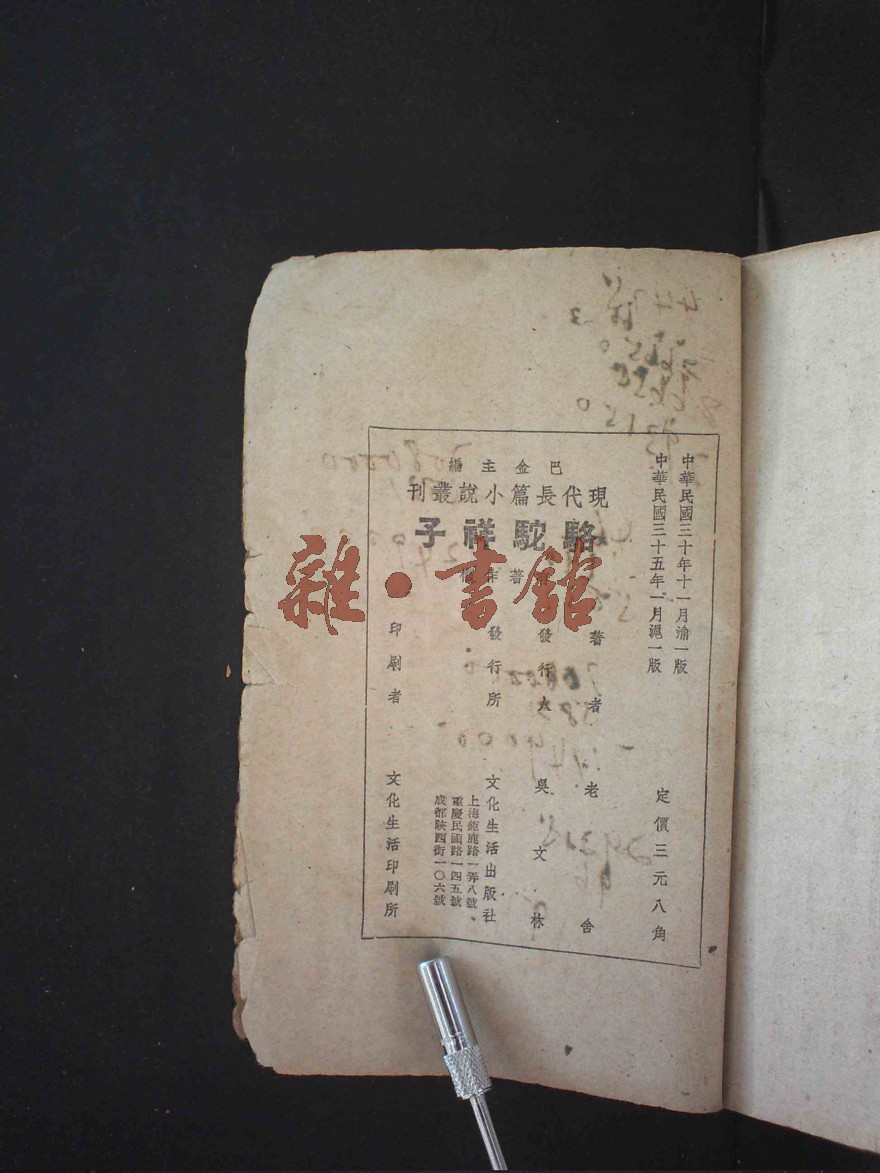 中華民國三十年十一月渝一版
中華民國三十五年一月滬一版
定價三元八角
巴金主編
現代長篇小說叢刊
駱駝祥子
著作
著者 老舍
發行人 吳文林
發行所 文化生活出版社
上海鉅鹿路一弄八號
重慶民國路一四五號
成都陝西街一〇六號
印刷者 文化生活印刷所
雜·書館